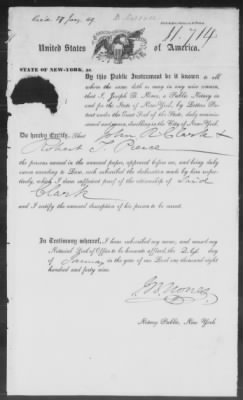 11.714
United States of America.
STATE OF NEW-YORK, ss.
By this Public Instrument be it known to all
whom the same doth or may in any wise concern,
that I, Joseph B. Nones, a Public Notary in
and for the State of New-York, by Letters Pa-
tent under the Great Seal of the State, duly commis-
sioned and sworn, dwelling in the City of New-York,
Do hereby Certify, That John Clark &
Robert T. Pierce
the persons named in the annexed papers, appeared before me, and being duly
sworn according to Law, each subscribed the declaration made by him respec-
tively, which I deem sufficient proof of the citizenship of said
Clark
and I certify the annexed description of his person to be correct.
In Testimony whereof, I have subscribed my name, and caused my
Notarial Seal of Office to be hereunto affixed, the
of January in the year of our Lord one thousand eight
hundred and forty nine
J B Nones
Notary Public, New York